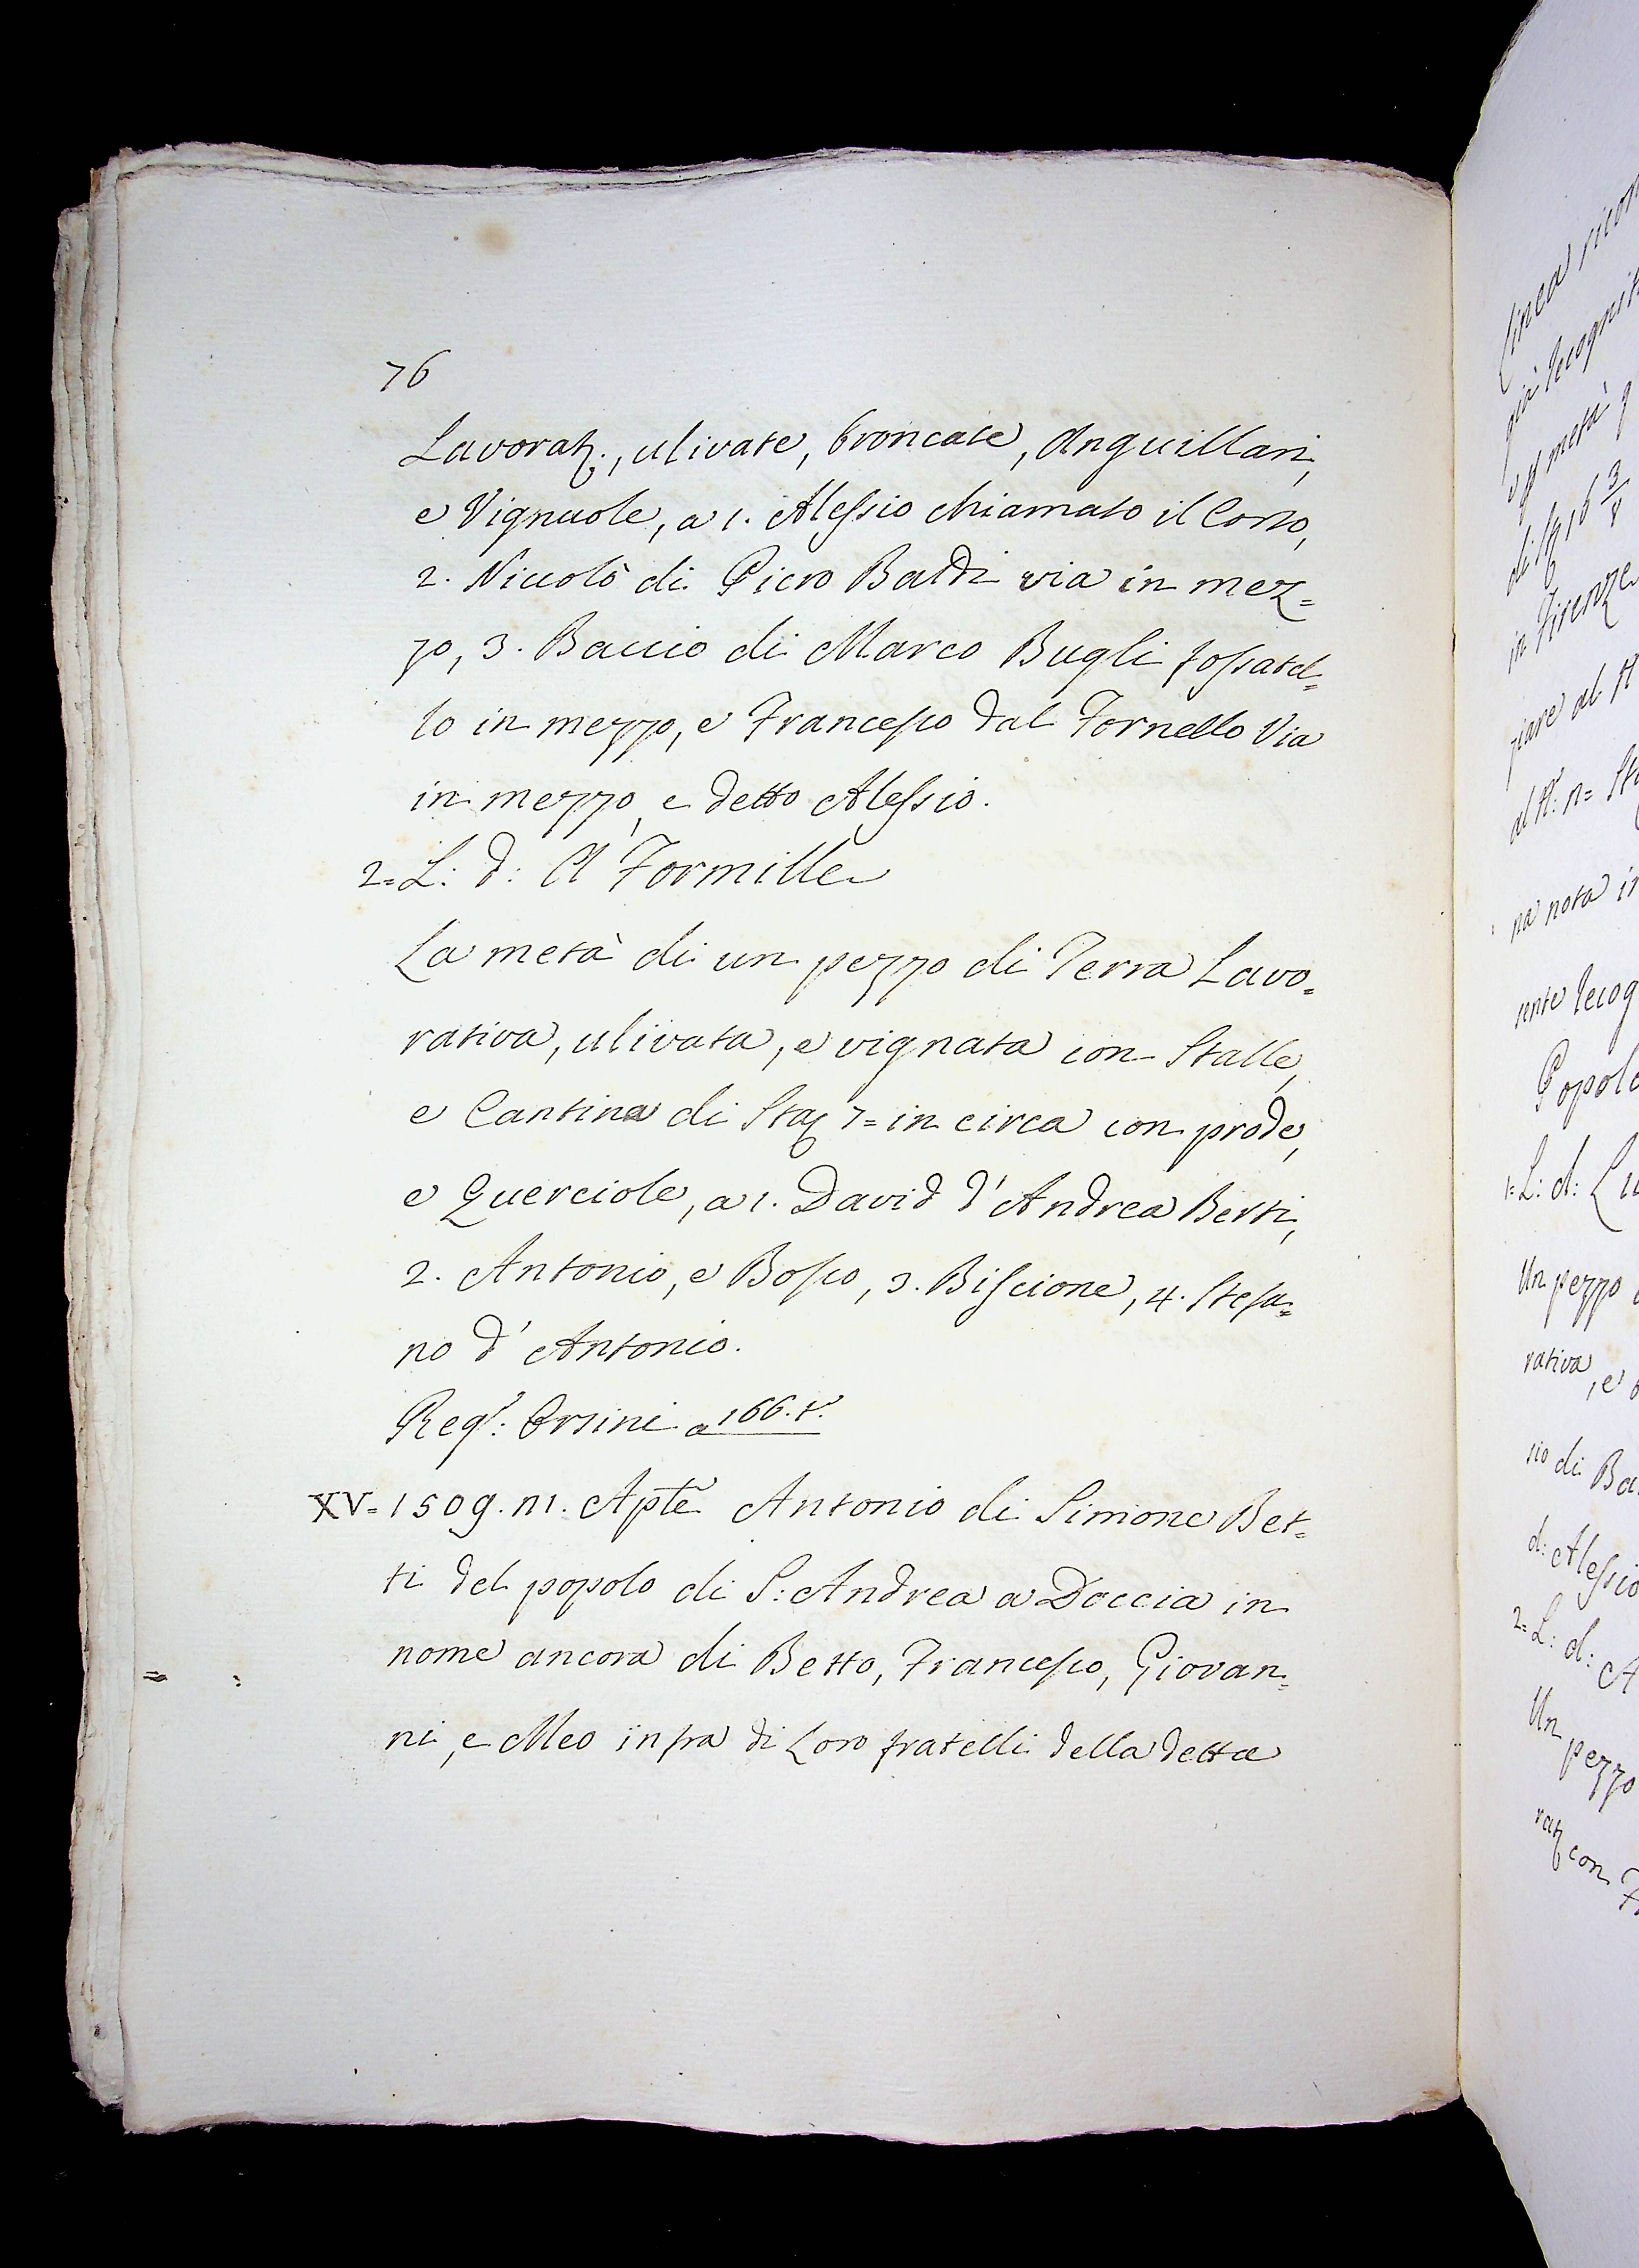 76
Lavorat:, ulivate, broncate, Anguillari,
e Vignuole, a 1. Alessio chiamato il Corso,
2. Niccolò di Piero Baldi via in mez=
zo, 3. Baccio di Marco Bugli fossatel=
lo in mezzo, e Francesco dal Fornello Via
in mezzo, e detto Alessio.
2= L: d: A' Formille
La metà di un pezzo di Terra Lavo=
rativa, ulivata, e vignata con Stalle,
e Cantina di Sta: 7= in circa con prode,
e Querciole, a 1. David d'Andrea Berti,
2. Antonio, e Bosco, 3. Biscione, 4. Stefa=
no d'Antonio.
Reg:º Orsini a 166. t.º
XV= 1509. m. Apte Antonio di Simone Bet=
ti del popolo di S: Andrea a Doccia in
nome ancora di Betto, Francesco, Giovan=
ni, e Meo infra di Loro fratelli della detta
linea
già recognit
metà
in Firenze
ziare al
na nota in
sente recog
Popolo
1= L: d:
Un pezzo
rativa, e
sio di Ba
d: Alessio
2= L: d: A
Un pezzo
con